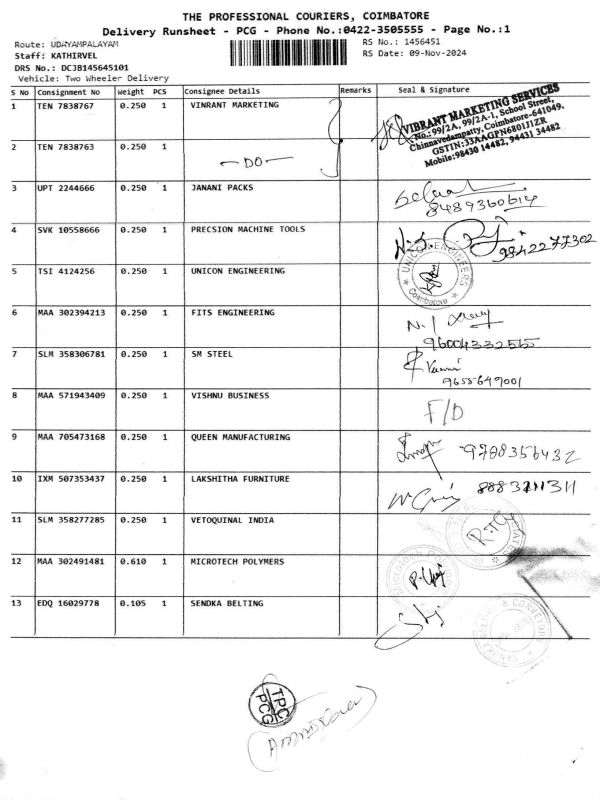 THE PROFESSIONAL COURIERS, COIMBATORE
Delivery Runsheet - PCG - Phone No.:0422-3505555 - Page No.:1
Route: UDAYAMPALAYAM
RS No.: 1456451
Staff: KATHIRVEL
RS Date: 09-Nov-2024
DRS No.: DCJB145645101
Vehicle: Two Wheeler Delivery
S No Consignment No Weight PCS Consignee Details Remarks Seal & Signature
1 TEN 7838767 0.250 1 VINRANT MARKETING
VIBRANT MARKETING SERVICES
No.:99/2A, 99/2A-1, School Street,
Chinnavedampatty, Coimbatore-641049.
GSTIN:33AAGPN6801J1ZR
Mobile:98430 14482, 94431 34482
2 TEN 7838763 0.250 1 -DO-
3 UPT 2244666 0.250 1 JANANI PACKS
8489360614
4 SVK 10558666 0.250 1 PRECSION MACHINE TOOLS
9842277302
5 TSI 4124256 0.250 1 UNICON ENGINEERING
UNICON ENGINEERS
Coimbatore
6 MAA 302394213 0.250 1 FITS ENGINEERING
7 SLM 358306781 0.250 1 SM STEEL
9655649001
8 MAA 571943409 0.250 1 VISHNU BUSINESS
F/D
9 MAA 705473168 0.250 1 QUEEN MANUFACTURING
9788356432
10 IXM 507353437 0.250 1 LAKSHITHA FURNITURE
11 SLM 358277285 0.250 1 VETOQUINAL INDIA
12 MAA 302491481 0.610 1 MICROTECH POLYMERS
13 EDQ 16029778 0.105 1 SENDKA BELTING
TPC
PCG